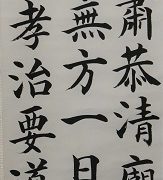 肅恭清廟
無方一日
孝治要道